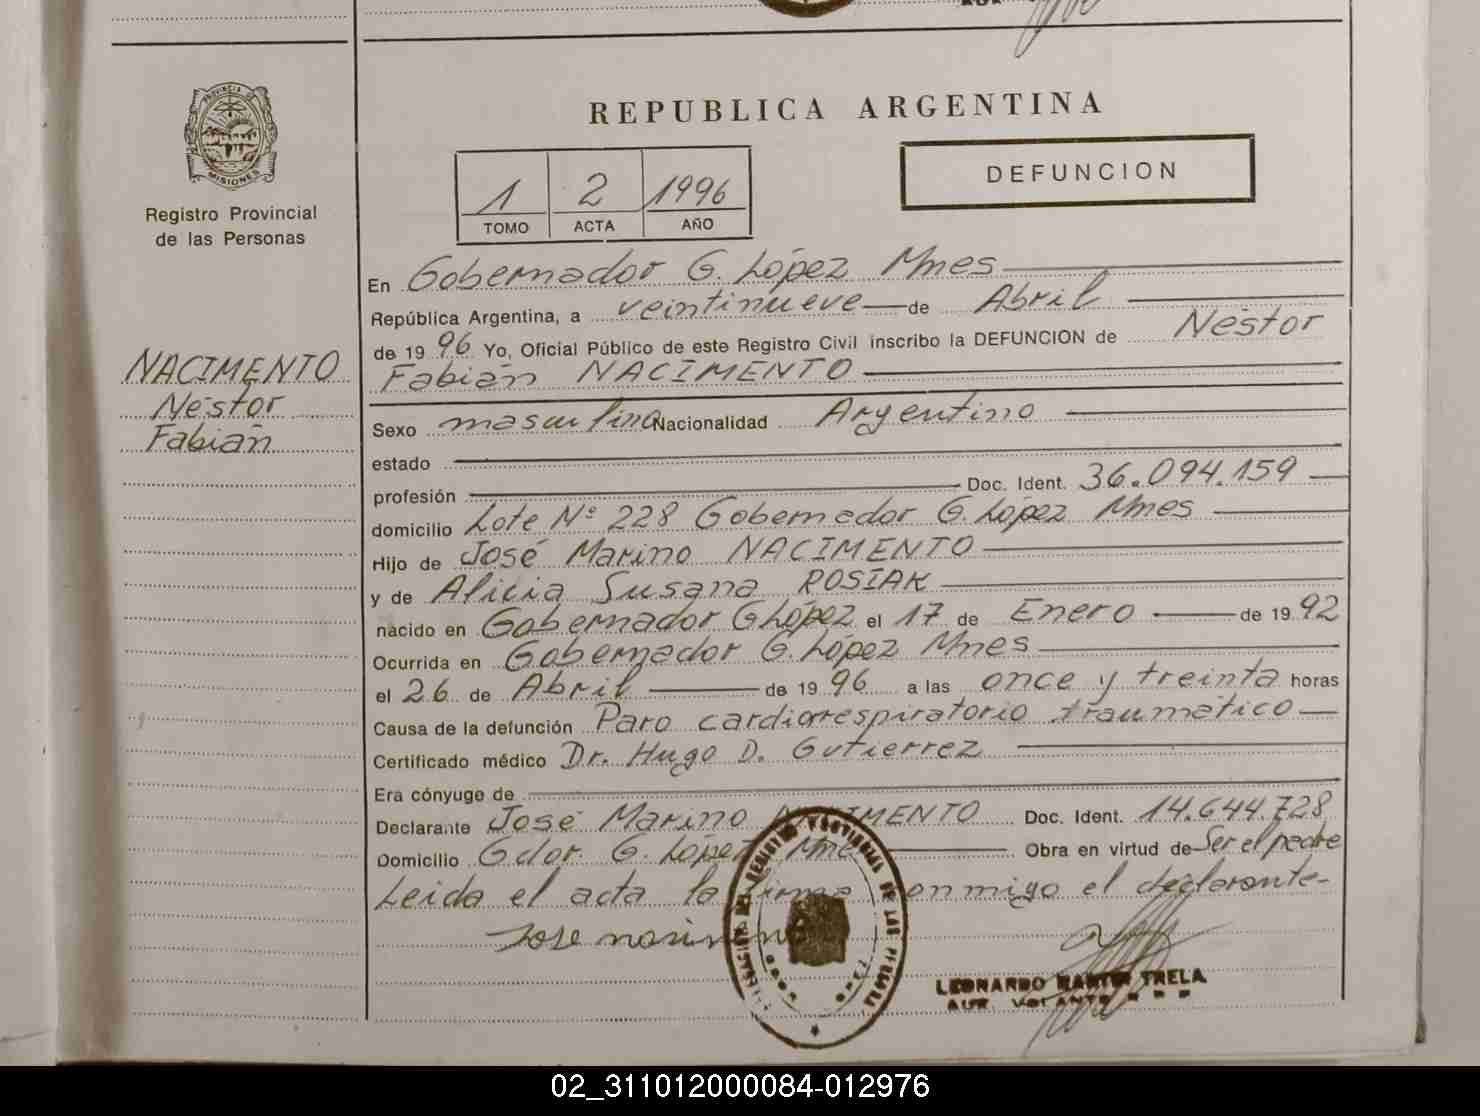 REPUBLICA ARGENTINA
PROVINCIA DE
MISIONES
Registro Provincial
de las Personas
1 2 1996
TOMO ACTA AÑO
DEFUNCION
En Gobernador G. López Mnes
República Argentina, a veintinueve de Abril
de 1996 Yo, Oficial Público de este Registro Civil inscribo la DEFUNCION de Néstor
Fabián NACIMENTO
NACIMENTO
Néstor
Fabián
Sexo masculino Nacionalidad Argentino
estado
profesión Doc. Ident. 36.094.159
domicilio Lote Nº 228 Gobernador G. López Mnes
Hijo de José Marino NACIMENTO
y de Alicia Susana ROSIAK
nacido en Gobernador G López el 17 de Enero de 1992
Ocurrida en Gobernador G. López Mnes
el 26 de Abril de 1996 a las once y treinta horas
Causa de la defunción Paro cardiorrespiratorio traumático
Certificado médico Dr. Hugo D. Gutierrez
Era cónyuge de
Declarante José Marino NACIMENTO Doc. Ident. 14.644.728
Domicilio Gdor. G. López Mnes Obra en virtud de Ser el padre
Leida el acta la firma conmigo el declarante-
Jose
DEL REGISTRO PROVINCIAL DE LAS PERSONAS
LEONARDO TRELA
AUX. VOLANTE
02_311012000084-012976